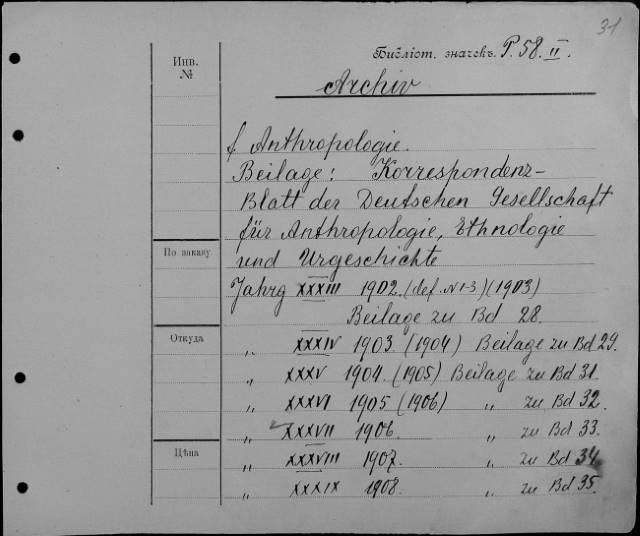 31
Библіот. значекъ P. 58. II.
Инв.
№
Archiv
f Anthropologie.
Beilage: Korrespondenz-
Blatt der Deutschen Gesellschaft
für Anthropologie, Ethnologie
По заказу
und Urgeschichte
Jahrg XXXIII 1902. (def. N 1-3) (1903)
Beilage zu Bd 28.
Откуда
„ XXXIV 1903. (1904) Beilage zu Bd 29.
„ XXXV 1904. (1905) Beilage zu Bd 31.
„ XXXVI 1905 (1906) „ zu Bd 32.
„ XXXVII 1906. „ zu Bd 33.
Цѣна
„ XXXVIII 1907. „ zu Bd 34.
„ XXXIX 1908. „ zu Bd 35.